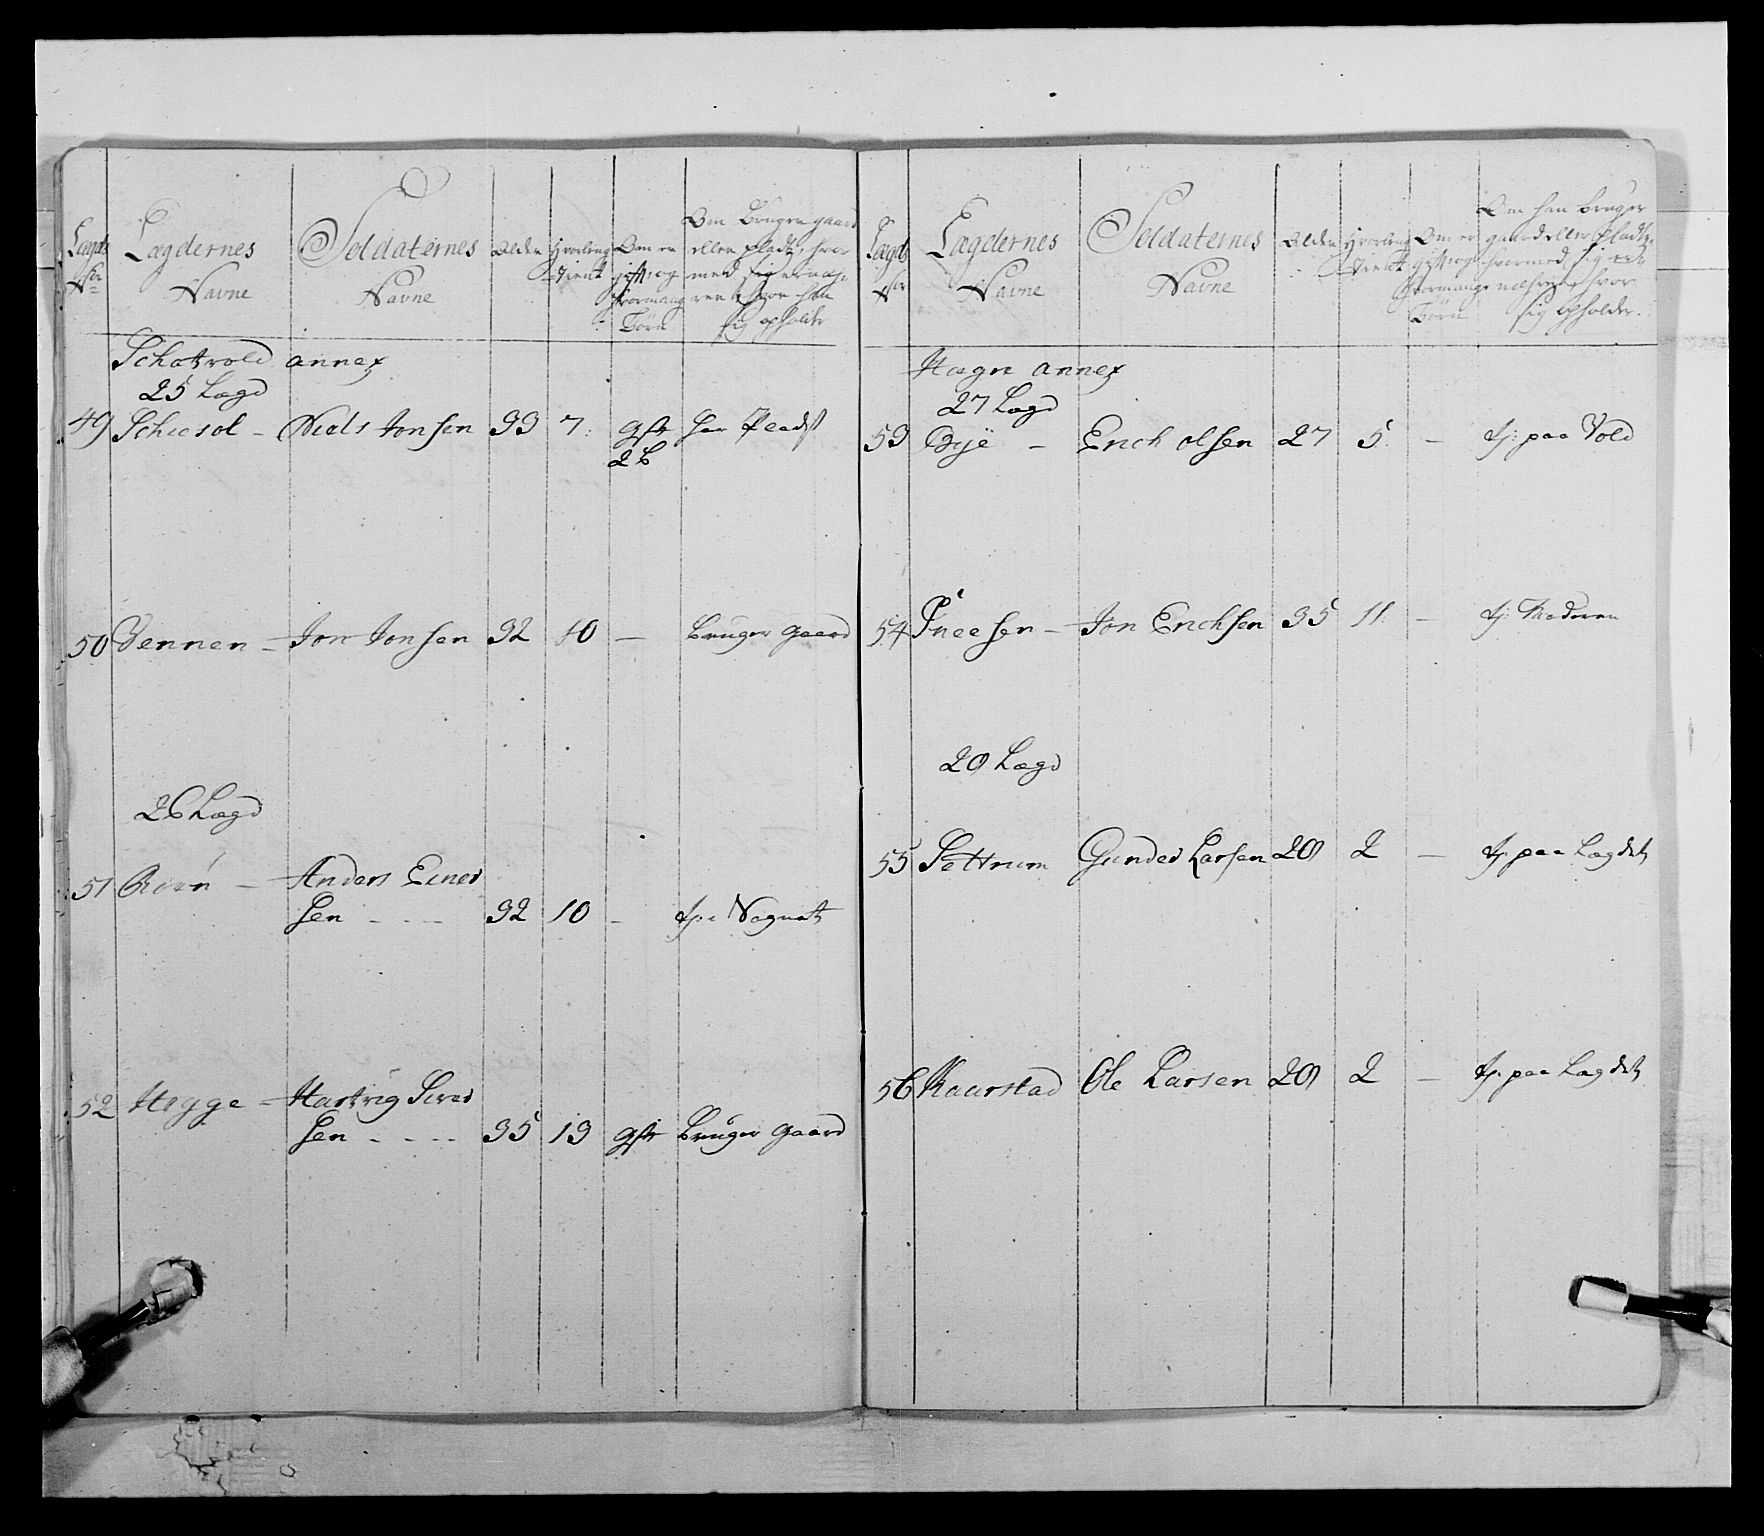 Lægd Nr
Lægdernes Navne
Soldaternes Navne
Alder
Hvorlenge tient
Om er gift, og hvormang Börn
Om Bruger gaard
eller pladtz, hvor
med sig ernæh-
rer hvor han
sig opholder
Schatvold annex
25 Lægd
49 Schiesol - Niels Jonsen 33 7. gift 2 b har Pladst
50 Vennen - Jon Jonsen 32 10 — Bruger gaard
26 Lægd
51 - Anders Einer
sen - - - 32 10 - tj.
52 Hegge - Hartvig Siver
sen - - - - 35 13 gift Bruger gaard
Lægd Nr
Lægdernes Navne
Soldaternes Navne
Alder
Hvorlenge tient
Om er gift, og hvormange Börn
Om han bruger
gaard eller pladtz,
hvormed sig er-
næhrer, hvor
sig opholder.
Hægre annex
27 Lægd
53 Öije - Erich olsen 27 5. — tj: paa Vold
54 - Jon Erichsen 35 11. — tj: Faderen
28 Lægd
55 Settrum Gunder Larsen 28 2 — tj: paa Lægdet
56 Kaarstad Ole Larsen 28 2 — tj: paa Lægdet